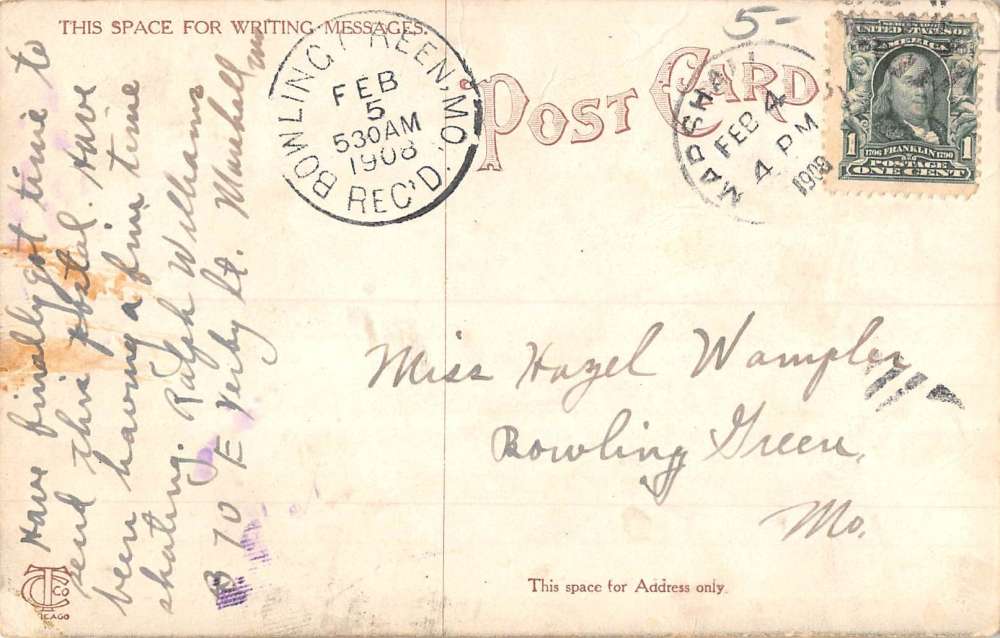 THIS SPACE FOR WRITING MESSAGES.
POST CARD
5-
BOWLING GREEN, MO.
FEB
5
530AM
1908
REC'D.
MARSHALL
FEB 4
4 PM
1908
UNITED STATES OF
AMERICA
1 1
1706 FRANKLIN 1790
POSTAGE
ONE CENT
Have finally got time to
send this postal. Have
been having a fine time
skating. Ralph Williams
E Yerby St. Marshall Mo
Miss Hazel Wampler
Bowling Green,
Mo.
This space for Address only.
CTCo